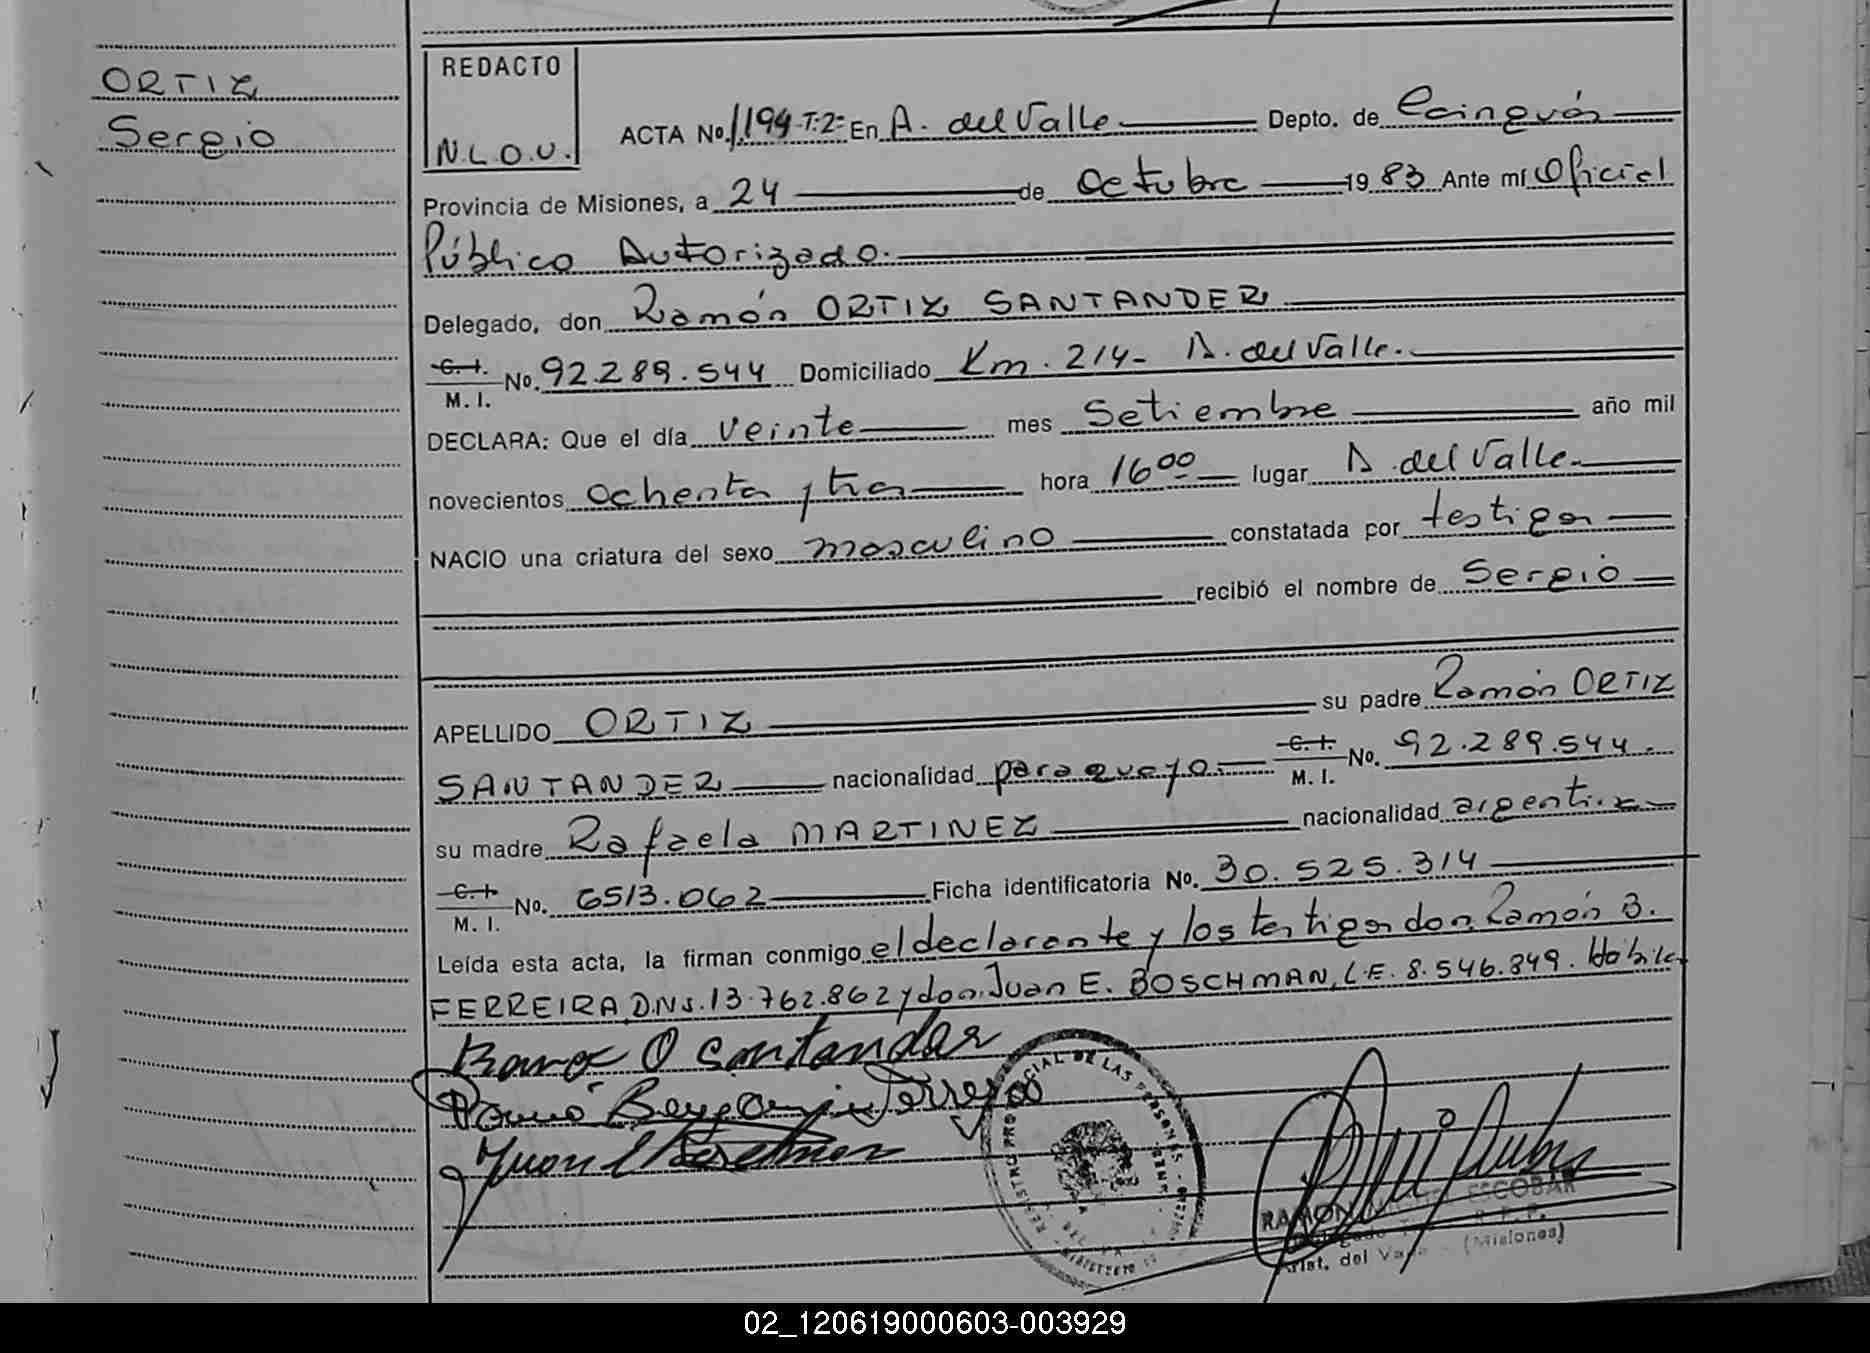 ORTIZ
Sergio
REDACTO
N.L.O.U.
ACTA No. 1.194-T:2- En A. del Valle Depto. de Cainguás
Provincia de Misiones, a 24 de Octubre 19 83 Ante mí Oficial
Público Autorizado.
Delegado, don Ramón ORTIZ SANTANDER
C. I.
M. I. No. 92.289.544 Domiciliado Km. 214- A. del Valle.
DECLARA: Que el día veinte mes Setiembre año mil
novecientos ochenta y tres hora 16 00 lugar A. del Valle.
NACIO una criatura del sexo masculino constatada por testigos
recibió el nombre de Sergio
APELLIDO ORTIZ su padre Ramón ORTIZ
SANTANDER nacionalidad paraguaya C. I. M. I. No. 92.289.544.
su madre Rafaela MARTINEZ nacionalidad argentina
C. I.
M. I. No. 6513.062 Ficha identificatoria No. 30.525.314
Leída esta acta, la firman conmigo el declarante y los testigos don Ramón B.
FERREIRA D.N.I. 13.762.862 y don Juan E. BOSCHMAN, L.E. 8.546.849. Hábiles
Ramon O Santander
REGISTRO PROVINCIAL DE LAS PERSONAS
RAMON ESCOBAR
Delegado
Arist. del Valle - (Misiones)
02_120619000603-003929